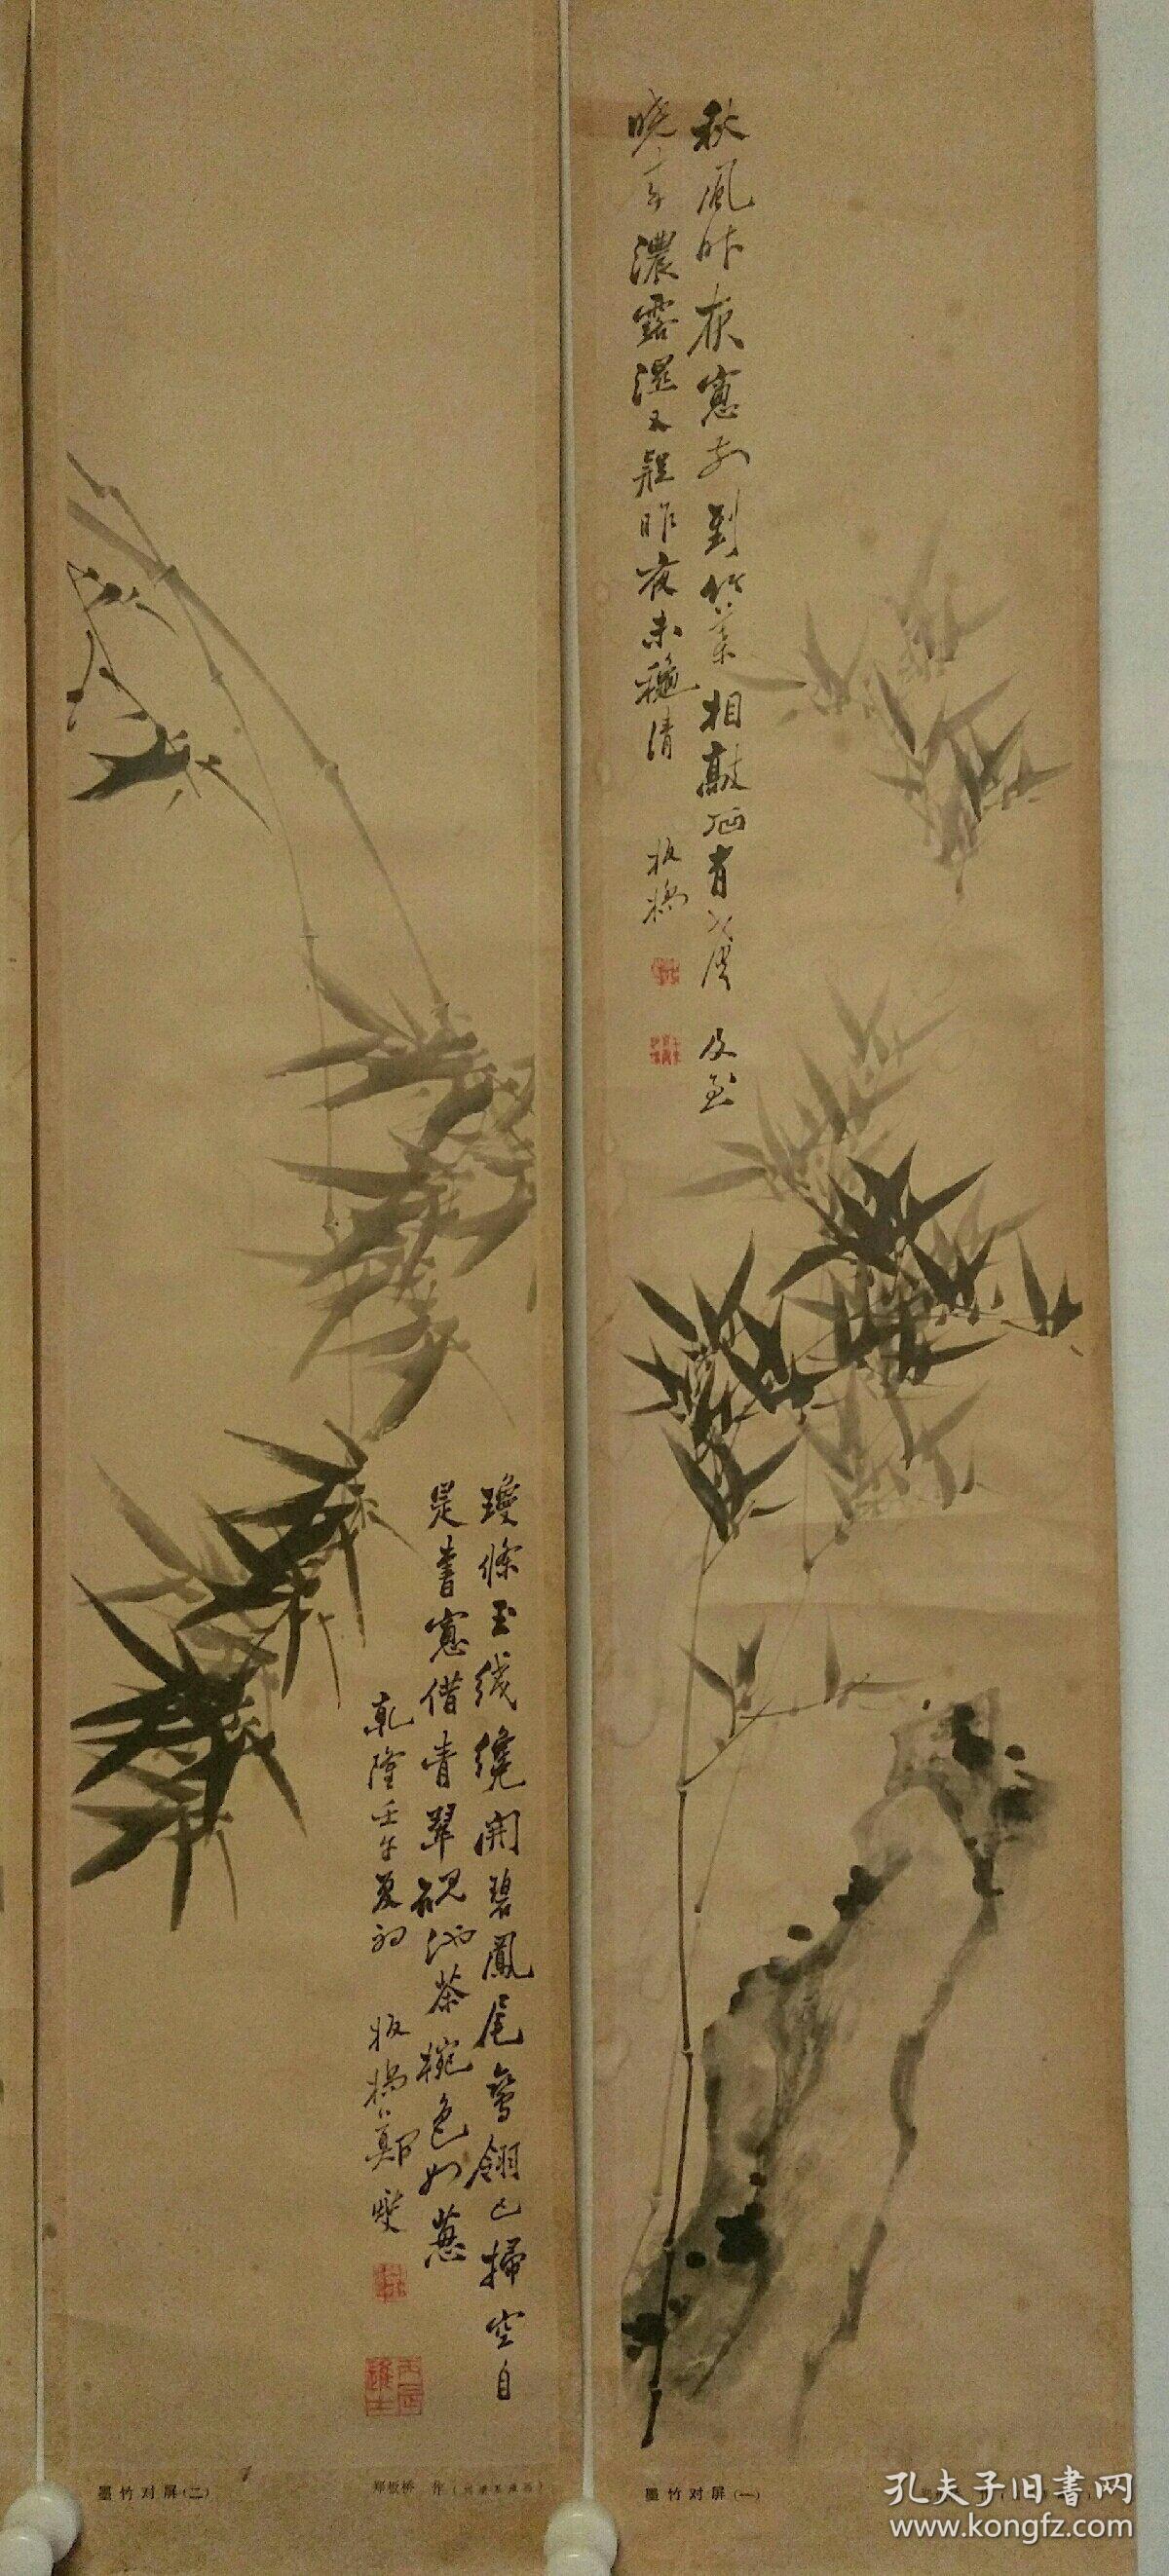 秋風昨夜窓前到竹葉相敲石有聲 及至
晓来濃露湿又疑昨夜未穐清
板橋
墨竹对屏(一)
瓊條玉綫繞開碧鳳尾鸞翎已掃空自
是書窓借青翠硯池茶椀色如葱
乾隆壬午夏初 板橋鄭燮
丙辰進士
墨竹对屏(二)
郑板桥 作
孔夫子旧书网
www.kongfz.com